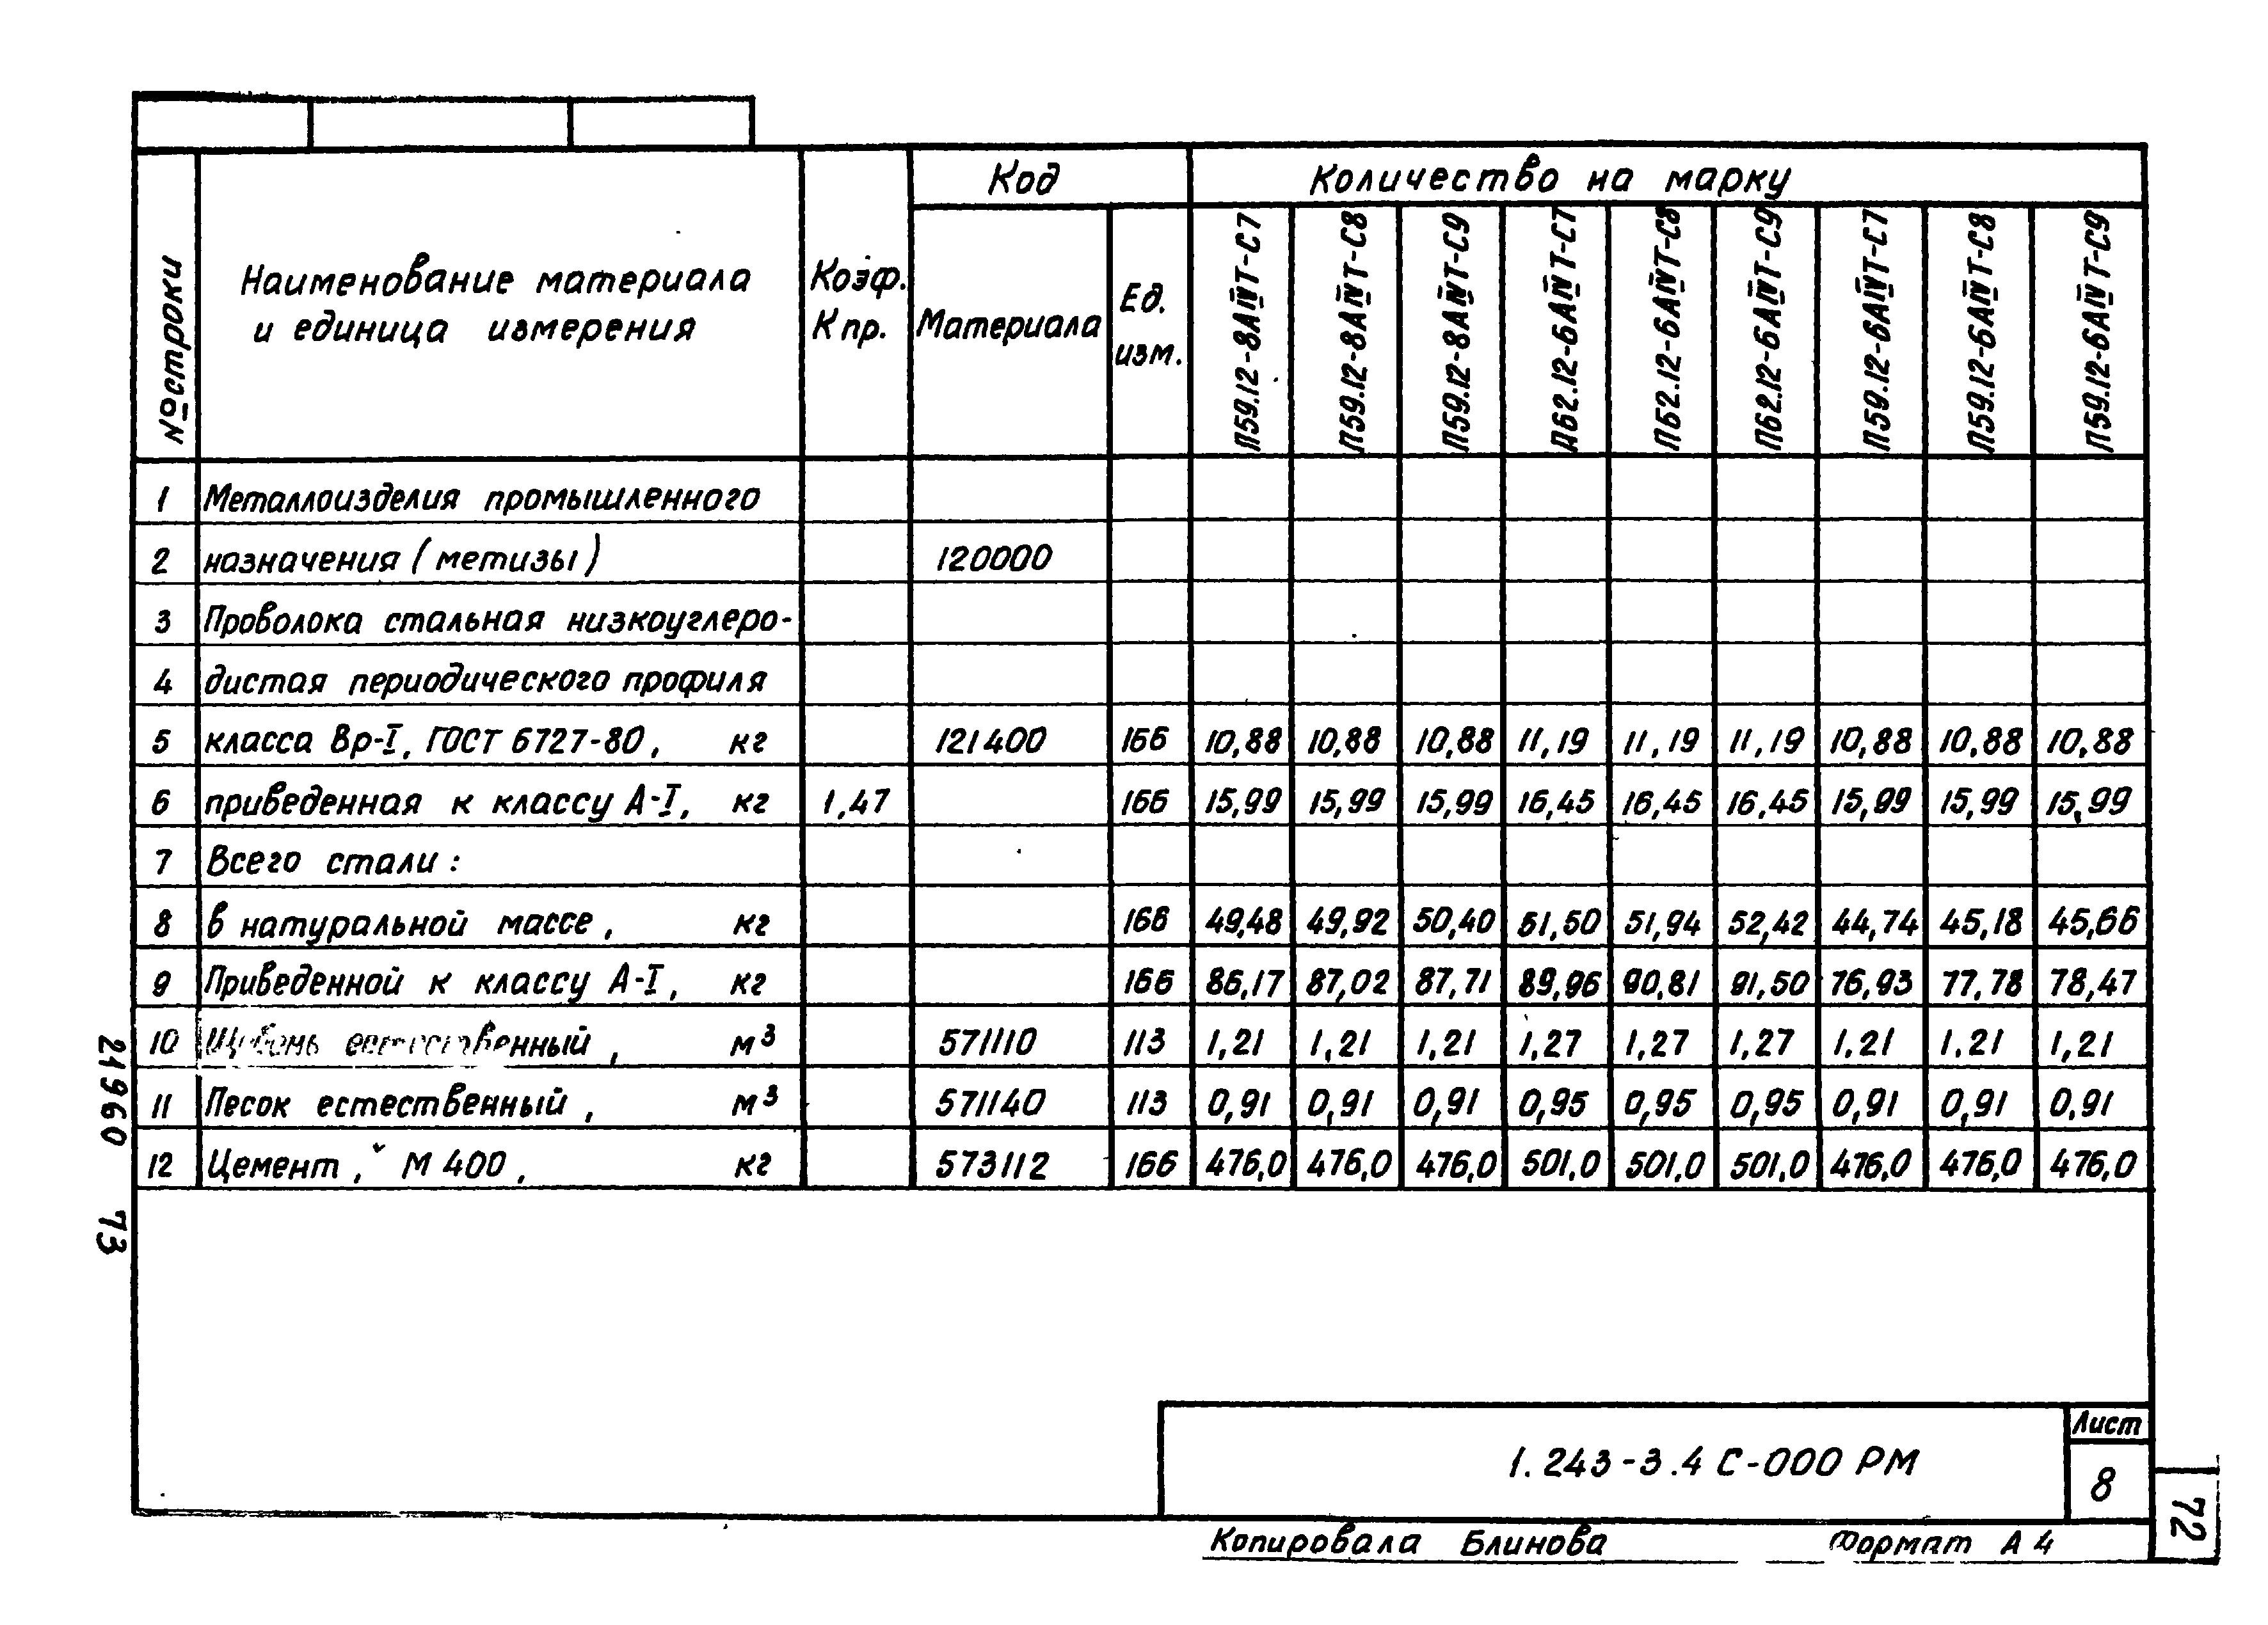 Код Количество на марку
№ строки
Наименование материала и единица измерения
Коэф. Кпр.
Материала
Ед. изм.
П59.12-8АIVТ-С7
П59.12-8АIVТ-С8
П59.12-8АIVТ-С9
П62.12-6АIVТ-С7
П62.12-6АIVТ-С8
П62.12-6АIVТ-С9
П59.12-6АIVТ-С7
П59.12-6АIVТ-С8
П59.12-6АIVТ-С9
1 Металлоизделия промышленного
2 назначения (метизы) 120000
3 Проволока стальная низкоуглеро-
4 дистая периодического профиля
5 класса Вр-I, ГОСТ 6727-80, кг 121400 166 10,88 10,88 10,88 11,19 11,19 11,19 10,88 10,88 10,88
6 приведенная к классу А-I, кг 1,47 166 15,99 15,99 15,99 16,45 16,45 16,45 15,99 15,99 15,99
7 Всего стали:
8 в натуральной массе, кг 166 49,48 49,92 50,40 51,50 51,94 52,42 44,74 45,18 45,66
9 Приведенной к классу А-I, кг 166 86,17 87,02 87,71 89,96 90,81 91,50 76,93 77,78 78,47
10 Щебень естественный, м³ 571110 113 1,21 1,21 1,21 1,27 1,27 1,27 1,21 1.21 1,21
11 Песок естественный, м³ 571140 113 0,91 0,91 0,91 0,95 0,95 0,95 0,91 0,91 0,91
12 Цемент, М 400, кг 573112 166 476,0 476,0 476,0 501,0 501,0 501,0 476,0 476,0 476,0
21960 73
1.243-3.4 С-000 РМ
Лист
8
72
Копировала Блинова Формат А4